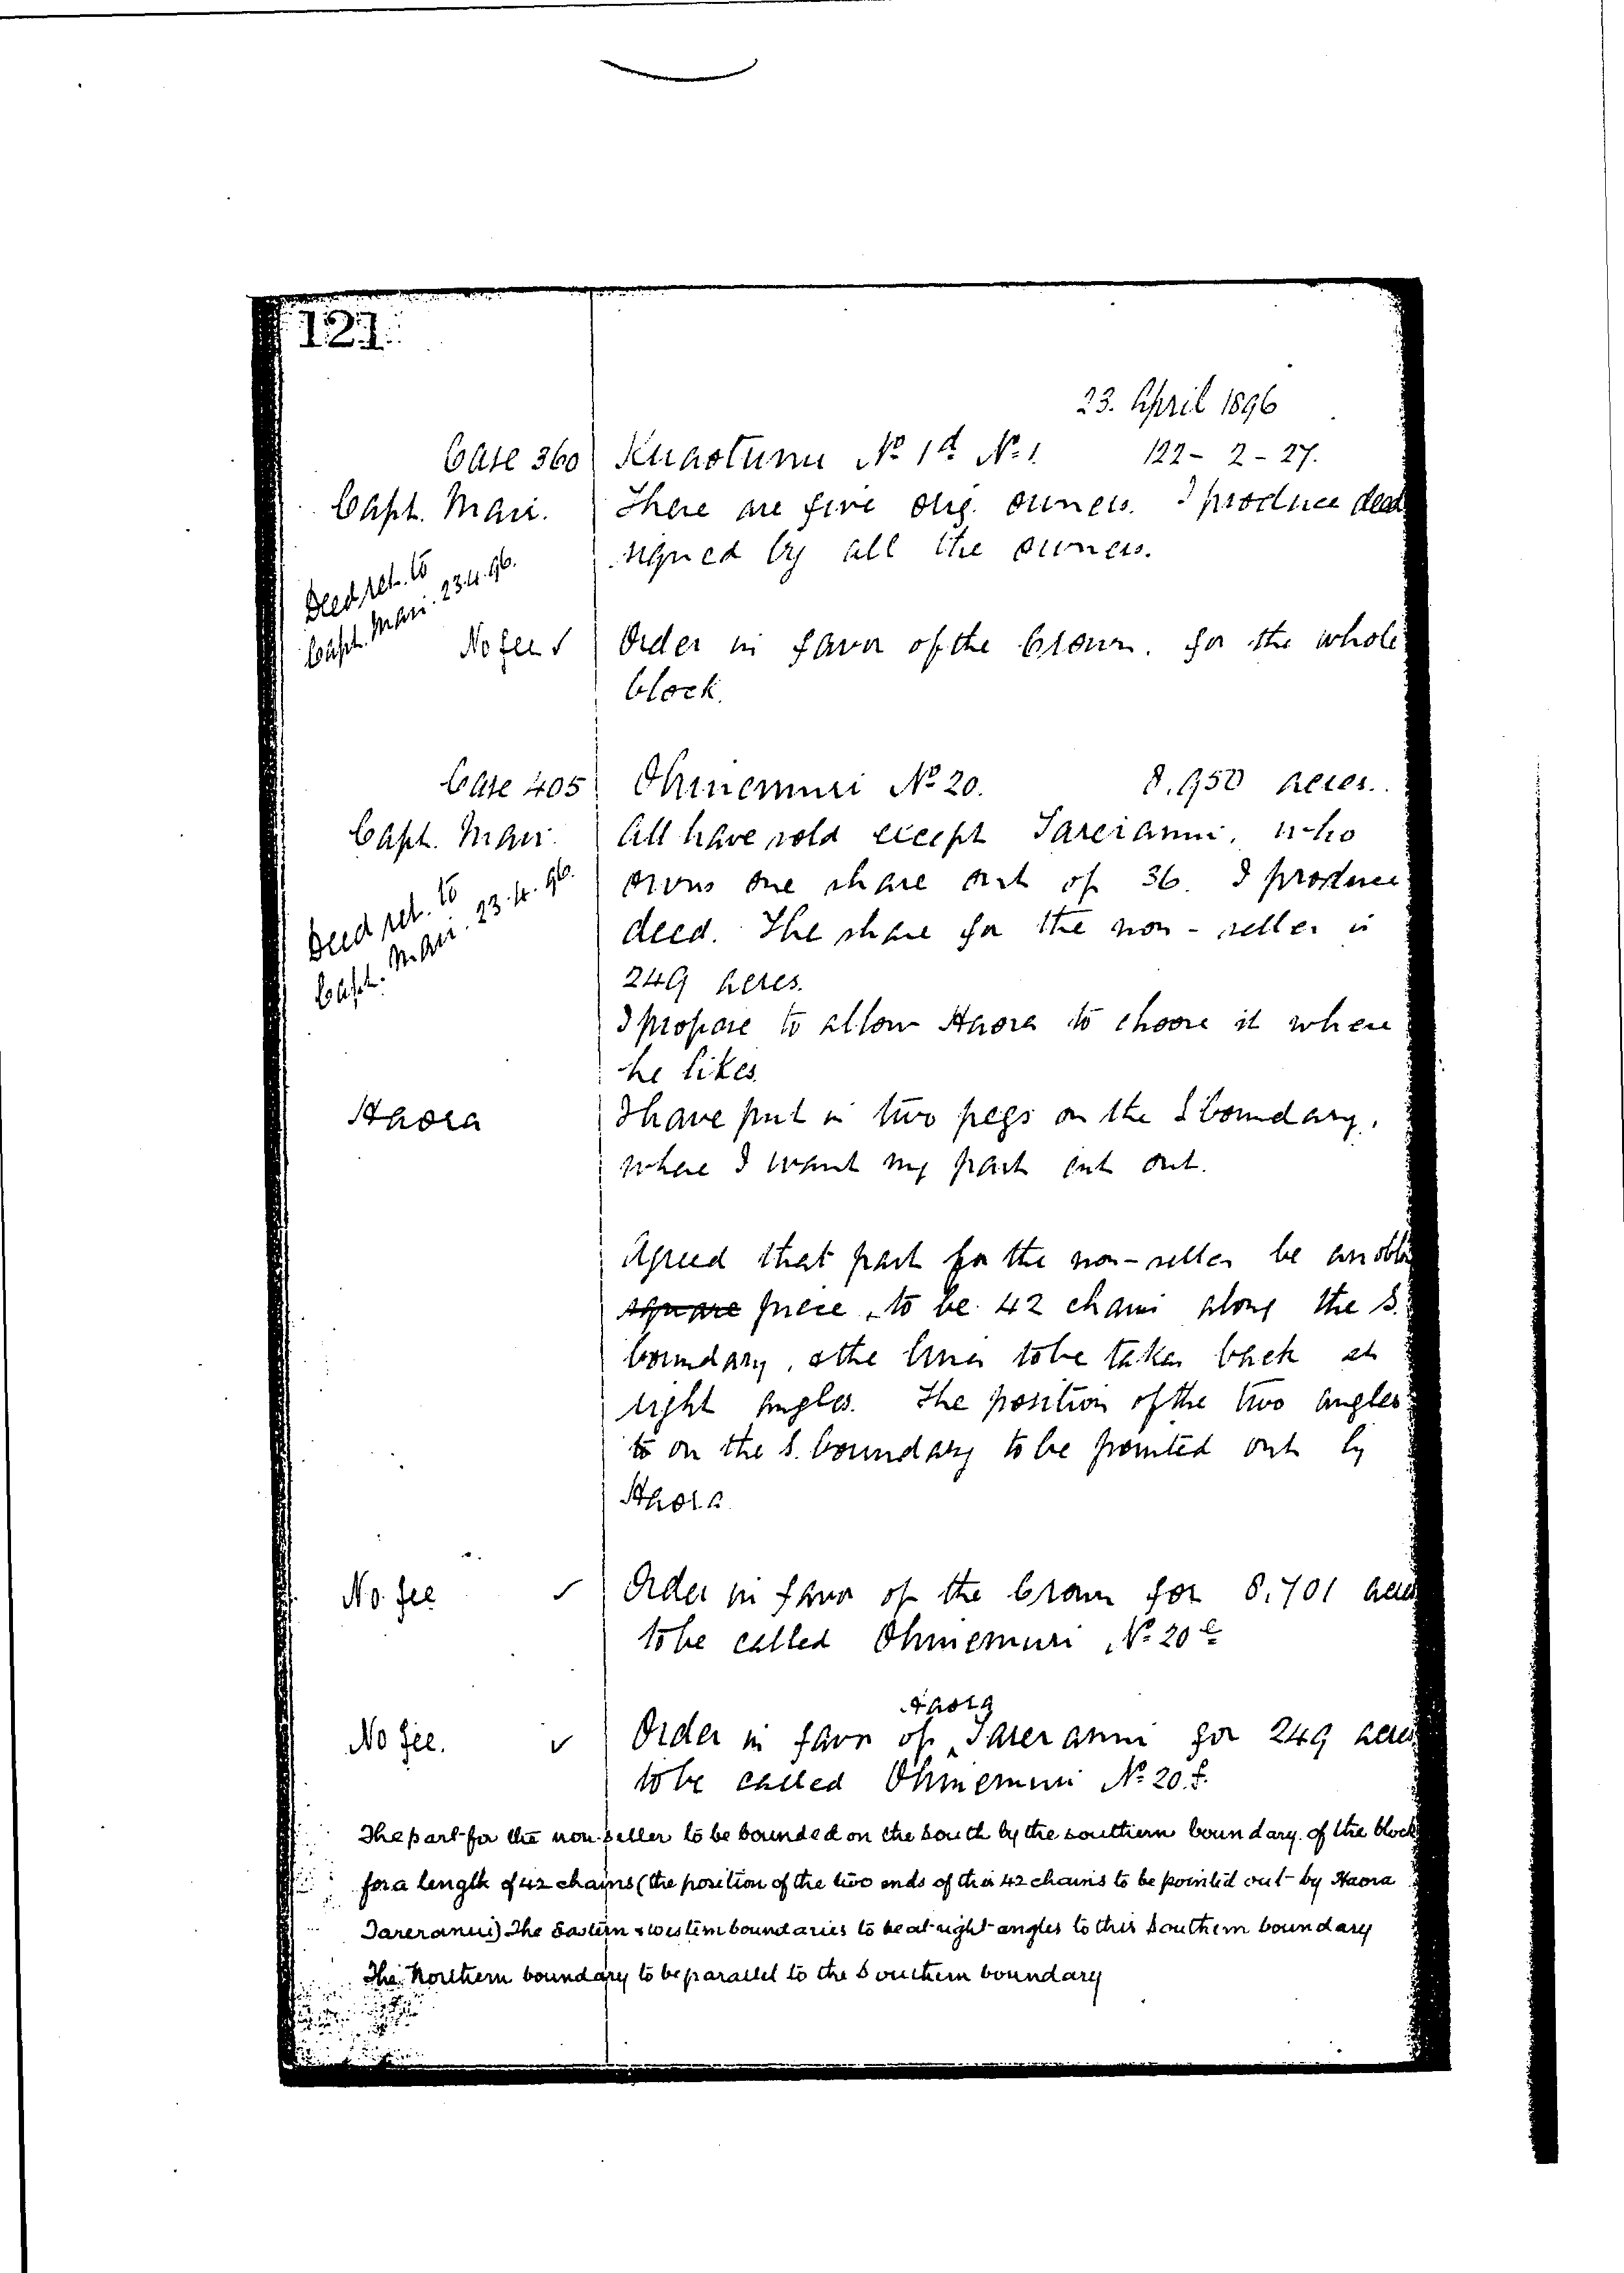 121.
23. April 1896
Case 360 Kuaotunu No 1d No. 1. 122 - 2 - 27.
Capt. Mair. There are five orig. owners. I produce deed
signed by all the owners.
Deed ret. to
Capt. Mair. 23.4.96.
No fee ✓ Order in favor of the Crown. for the whole
block.
Case 405 Ohinemuri No 20. 8,950 acres.
Capt. Mair. All have sold except Tareranui, who
owns one share out of 36. I produce
Deed ret. to
Capt. Mair. 23.4.96.
deed. The share for the non-seller is
249 acres.
I propose to allow Haora to choose it where
he likes.
Haora I have put in two pegs on the S boundary,
where I want my part cut out.
Agreed that part for the non-seller be an
square piece, to be 42 chains along the S.
boundary, & the lines to be taken back at
right angles. The position of the two angles
to on the S. boundary to be pointed out by
Haora
No fee ✓ Order in favor of the Crown for 8,701 acres
to be called Ohinemuri No. 20e
Haora
No fee. ✓ Order in favor of Tareranui for 249 acres
to be called Ohinemuri No. 20.f.
The part for the non-seller to be bounded on the South by the southern boundary of the block
for a length of 42 chains (the position of the two ends of this 42 chains to be pointed out by Haora
Tareranui) The Eastern & western boundaries to be at right angles to this Southern boundary
The Northern boundary to be parallel to the Southern boundary